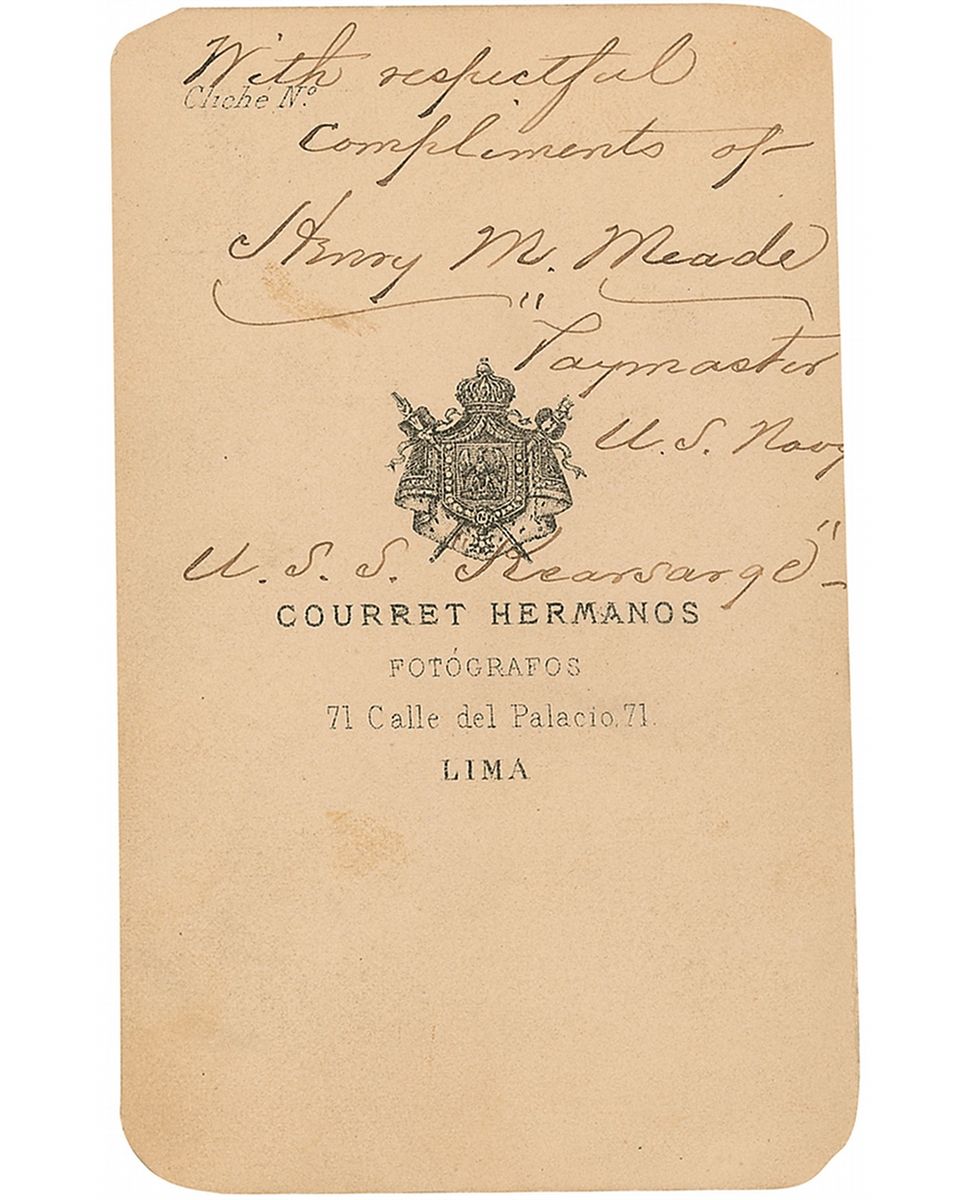 With respectful
Cliché Nº
compliments of
Henry M. Meade
"
Paymaster
U.S. Navy
U.S.S. Kearsarge"
COURRET HERMANOS
FOTÓGRAFOS
71 Calle del Palacio, 71.
LIMA